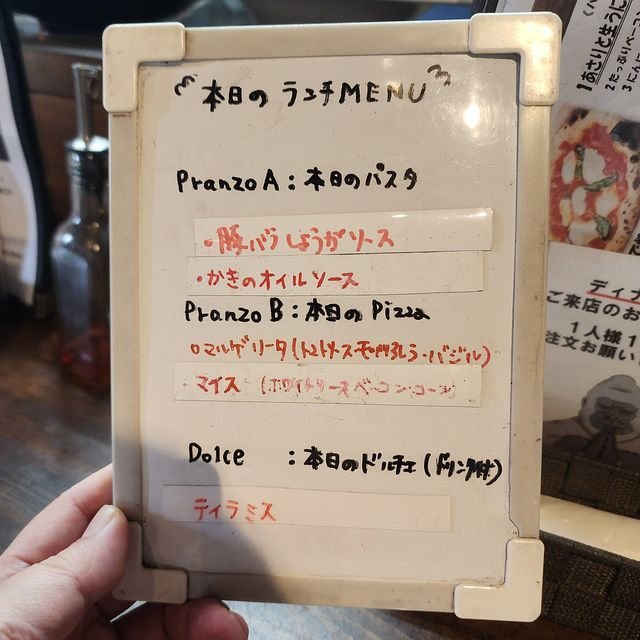 本日の ランチMENU
Pranzo A : 本日のパスタ
・豚バラ しょうがソース
・かきのオイルソース
Pranzo B : 本日の Pizza
○マルゲリータ(トマトソース・モッツァレラ・バジル)
・マイス (ホワイトソース ベーコン・コーン)
Dolce : 本日のドルチェ(ドリンク付)
ティラミス
1あさりと生うに
2たっぷりベー
3にんに
ディナ
ご来店のお
1人様1
注文お願い